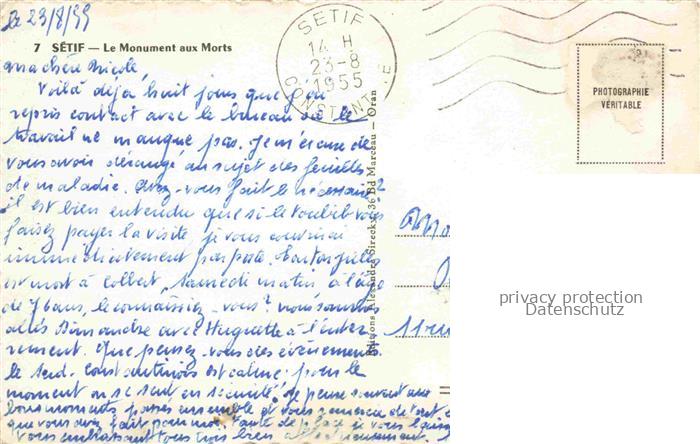 le 23/8/55
7 SÉTIF — Le Monument aux Morts
SETIF
14 H
23-8
1955
CONSTANTINE
PHOTOGRAPHIE
VÉRITABLE
ma chère Nicole,
Voilà déjà huit jours que j'ai
repris contact avec le bureau où le
travail ne manque pas. Je m'excuse de
vous avoir dérangé au sujet des feuilles
de maladie. Avez-vous fait le nécessaire?
il est bien entendu que si le toubib vous
faisez payer la visite je vous couvrirai
immédiatement par poste. Gilles
est mort à Colbert, samedi matin, à l'âge
de ans, le connaissiez-vous? nous sommes
allés avec Huguette à l'enter
rement. Que pensez-vous des événements
le Sud-Constantinois est calme pour le
moment on se sent en sécurité. Je pense souvent aux
bons moments passés ensemble et vous remercie de tout ce
que vous avez fait pour moi. Faute de place je vous quitte
Vous embrassant tous trois bien affectueusement.
Editions Alexandre Sirecky, 36 Bd Marceau — Oran
privacy protection
Datenschutz